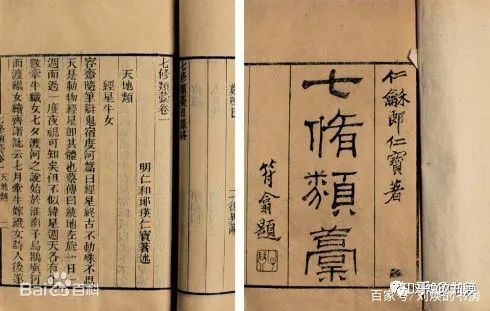 七修類藁卷一
明仁和郎瑛仁寶著述
天地類
經星牛女
容齋隨筆辯鬼宿度河篇曰經星終古不動殊不思
天是動物經星即其體也蔡傳曰繞地左旋一日一
週而過一度夜視可知矣但不似緯星週天各有
數牽牛織女七夕渡河之說始於淮南子烏鵲填河
而渡織女續齊諧記云七月牽牛嫁織女詩人後遂
天地類
仁龢郎仁寶著
七脩類藁
符翕題
Bai百科
百家号/刘焕的书房